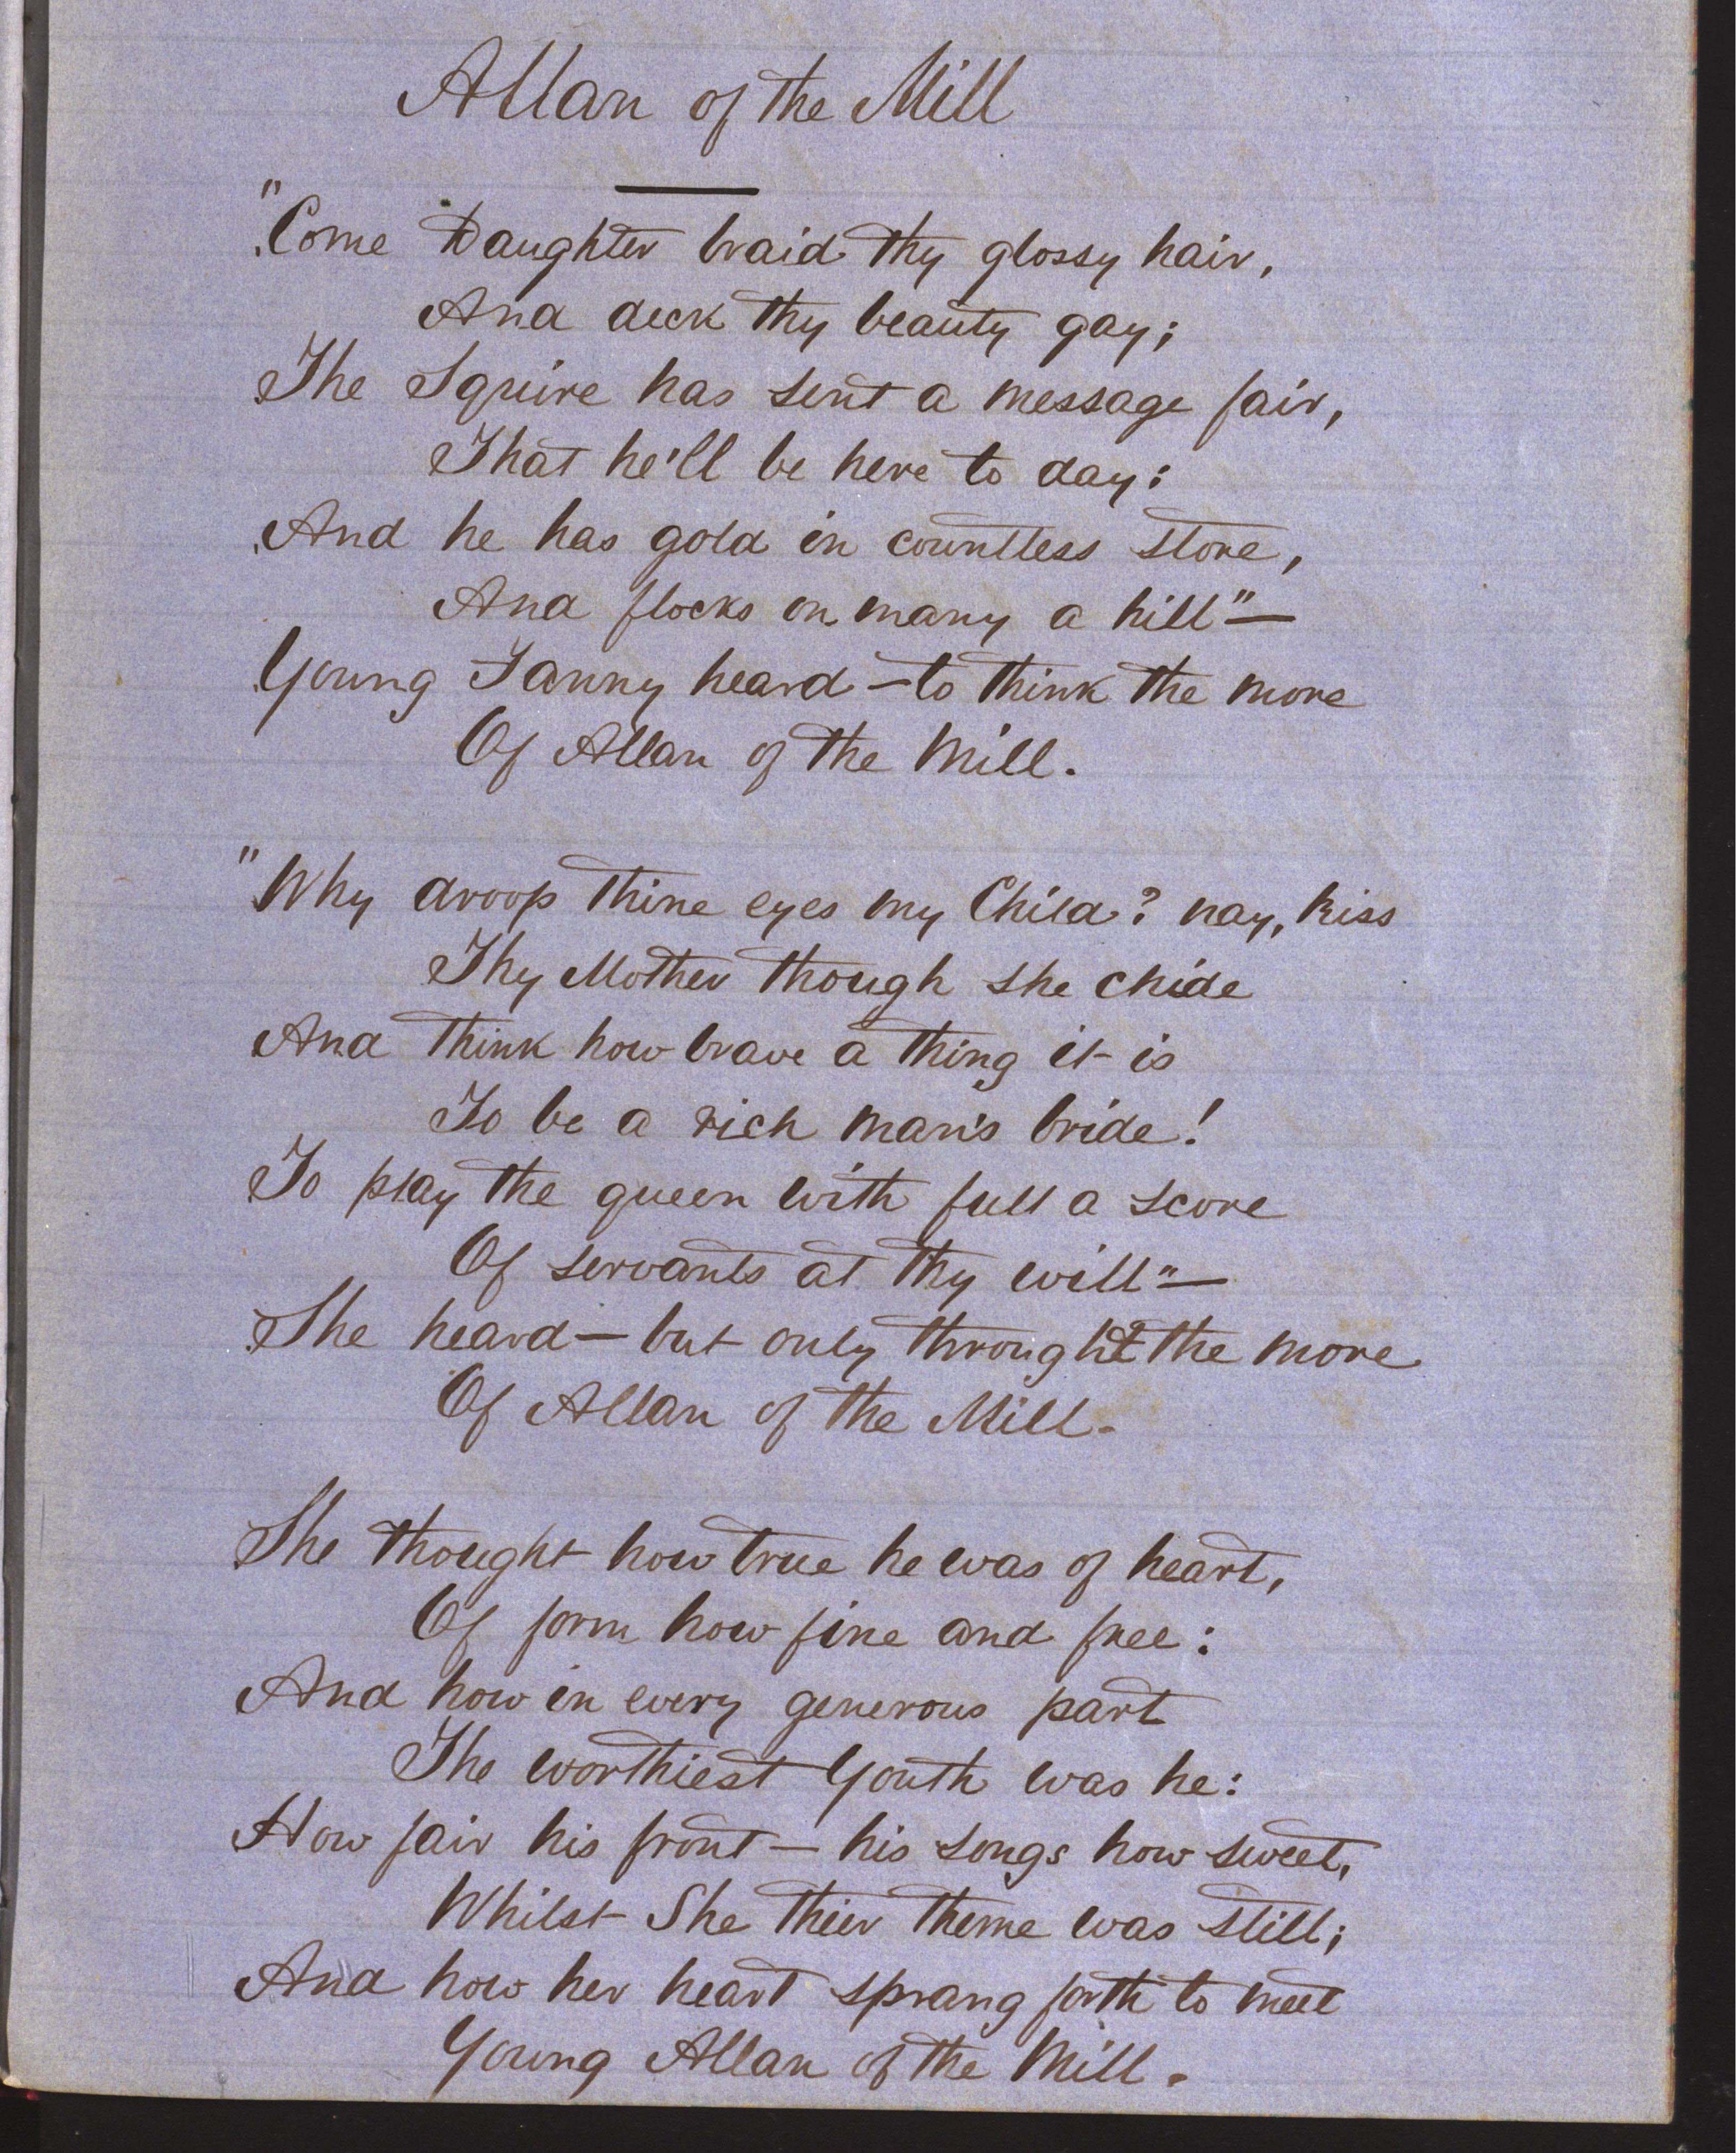 Allan of the Mill
"Come Daughter braid thy glossy hair,
And deck thy beauty gay;
The Squire has sent a message fair,
That he'll be here to day:
And he has gold in countless store,
And flocks on many a hill"—
Young Fanny heard — to think the more
Of Allan of the Mill.
"Why droop thine eyes my Child? nay, kiss
Thy Mother though she chide
And think how brave a thing it is
To be a rich man's bride!
To play the queen with full a score
Of servants at thy will"—
She heard — but only throught the more
Of Allan of the Mill.
She thought how true he was of heart,
Of form how fine and free:
And how in every generous part
The worthiest Youth was he:
How fair his front — his songs how sweet,
Whilst She their theme was still;
And how her heart sprang forth to meet
Young Allan of the Mill.